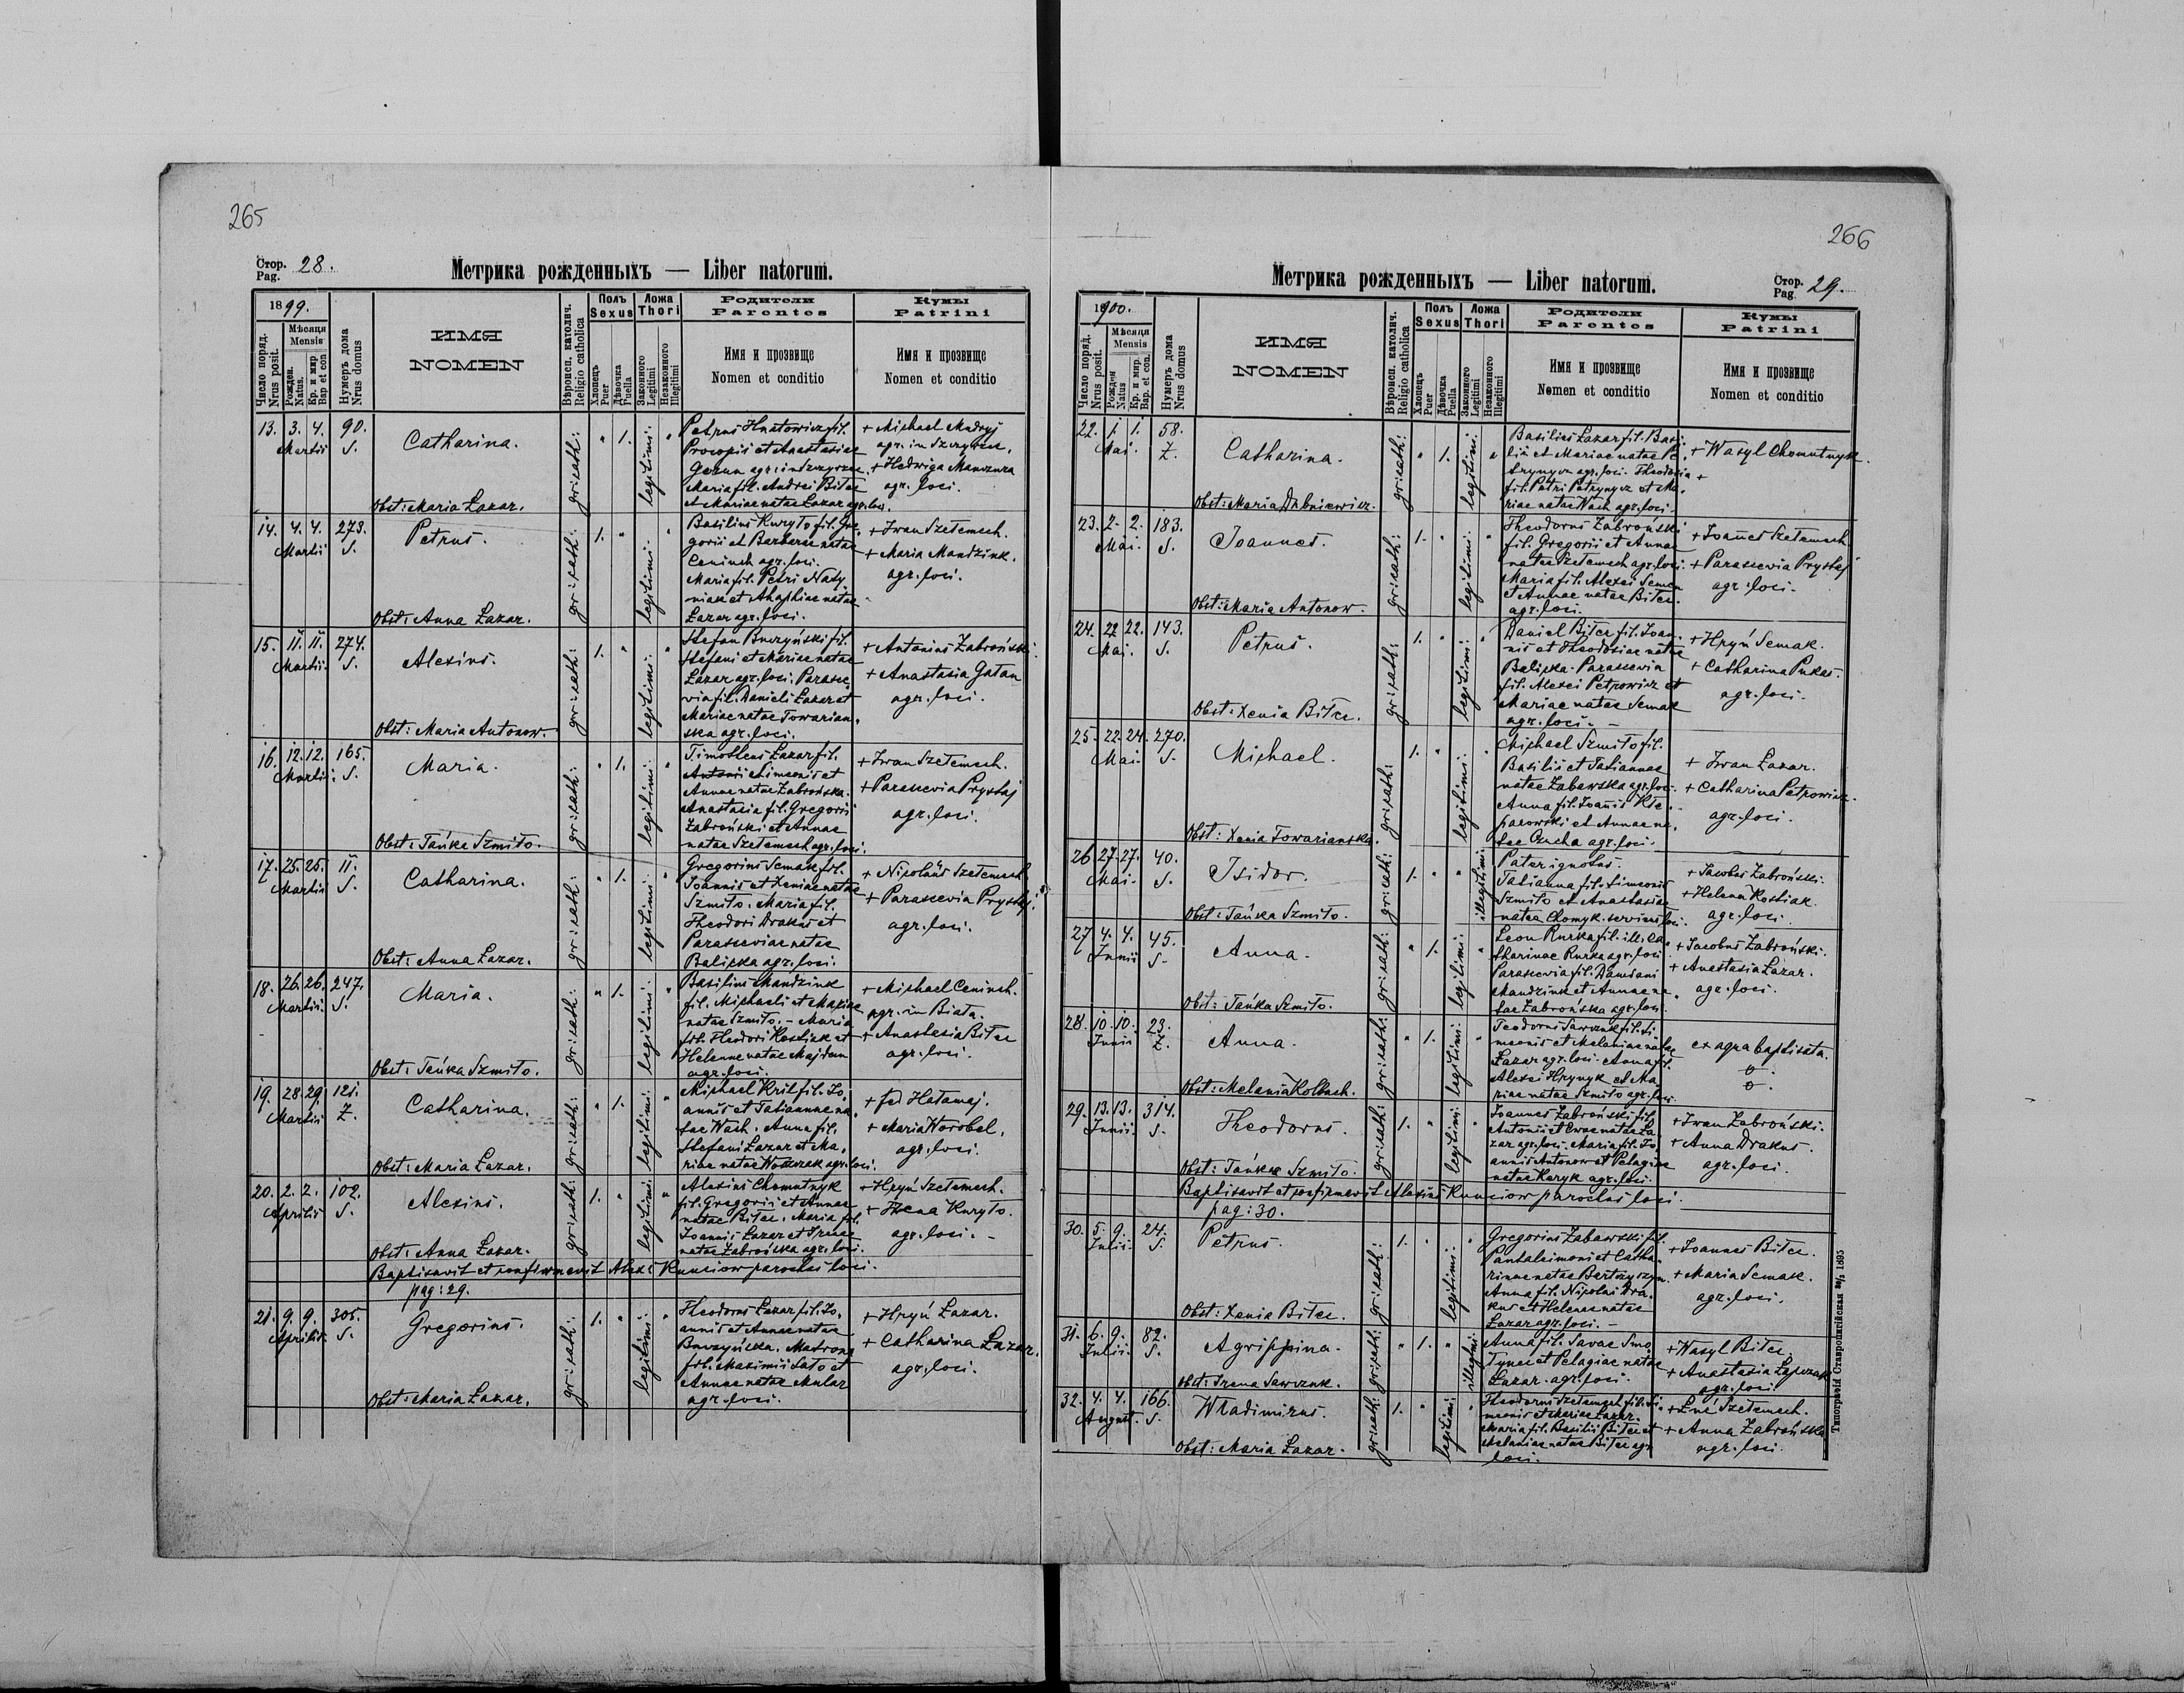 265
Стор. 28.
Pag.
Метрика рожденныхъ — Liber natorum.
1899.
Число поряд.
Nrus posit.
Мѣсяця
Mensis
Рожден.
Natus.
Кр. и мир
Bap et con
Нумеръ дома
Nrus domus
ИМЯ
NOMEN
Вѣроисп. католич.
Religio catholica
Полъ
Sexus
Хлопець
Puer
Дѣвочка
Puella
Ложа
Thori
Законного
Legitimi
Незаконного
Illegitimi
Родители
Parentes
Имя и прозвище
Nomen et conditio
Кумы
Patrini
Имя и прозвище
Nomen et conditio
13. 3. 4. 90.
Martii S.
Catharina.
Obst: Maria Łazar.
gr: cath: " 1. legitimi: "
Petrus Hnatowicz fil.
Procopii et Anastasiae
Gerun agr: in Szczyrzec.
Maria fil. Andrei Bilec
et Mariae natae Łazar agr. loci.
+ Michael Mudryj
agr. in Szczyrzec.
+ Hedwiga Manczura
agr. loci.
14. 4. 4. 273.
Martii S.
Petrus.
Obst: Anna Łazar.
gr: cath: 1. " legitimi: "
Basilius Kuryło fil. Gre-
gorii et Barbarae natae
Ceniuch agr. loci.
Maria fil. Petri Naty
niak et Ahaphiae natae
Łazar agr. loci.
+ Iwan Szełemech.
+ Maria Mandziuk.
agr. loci.
15. 11. 11. 274.
Martii. S.
Alexius.
Obst: Maria Antonow.
gr: cath: 1. " legitimi: "
Stefan Buczyński fil.
Stefani et Mariae natae
Łazar agr. loci. Parasce
wia fil. Danieli Łazar et
Mariae natae Towarian,
ska agr. loci.
+ Antonius Zabroński.
+ Anastasia Gałan
agr. loci.
16. 12. 12. 165.
Martii. S.
Maria.
Obst: Tańka Szmiło.
gr: cath: " 1. legitimi: "
Timotheus Łazar fil.
Antonii Simeonis et
Annae natae Zabrońska.
Anastasia fil. Gregorii
Zabroński et Annae
natae Szełemech agr. loci.
+ Iwan Szełemech.
+ Parascewia Prystaj
agr. loci.
17. 25. 25. 11.
Martii S.
Catharina.
Obst: Anna Łazar.
gr: cath: " 1. legitimi: "
Gregorius Semak fil.
Joannis et Xeniae natae
Szmiło. Maria fil.
Theodori Drakus et
Parascewiae natae
Balicka agr. loci.
+ Nicolaus Szełemech
+ Parascewia Prystaj.
agr. loci.
18. 26. 26. 247.
Martii. S.
Maria.
Obst: Tańka Szmiło.
gr: cath: " 1. legitimi: "
Basilius Mandziuk
fil. Michaeli et Mariae
natae Szmiło. – Maria
fil. Theodori Kostiuk et
Helenae natae Majdan
agr. loci.
+ Michael Ceniuch.
agr. in Biała.
+ Anastasia Bilec
agr. loci.
19. 28. 29. 121.
Martii Z.
Catharina.
Obst: Maria Łazar.
gr: cath: " 1. legitimi: "
Michael Kril fil. Jo,
annis et Tatiannae na,
tae Wach. Anna fil.
Stefani Łazar et Ma,
riae natae agr. loci.
+ Fed Hałamaj.
+ Maria Worobel.
agr. loci.
20. 2. 2. 102.
Aprilis S.
Alexius.
Obst: Anna Łazar.
gr: cath: 1. " legitimi: "
Alexius Chomutnyk
fil. Gregorii et Annae
natae Bilec. Maria fil.
Joannis Łazar et Irenae
natae Zabrońska agr. loci.
+ Hryń Szełemech.
+ Kuryło.
agr. loci. –
Baptisavit et confirmavit Alexi Kunciow parochus loci.
pag: 29.
21. 9. 9. 305.
Aprilis. S.
Gregorius.
Obst: Maria Łazar.
gr: cath: 1. " legitimi: "
Theodorus Łazar fil. Jo,
annis et Annae natae
Buczyńska. Matrona
fil. Maximii Sało et
Annae natae Mular
agr. loci.
+ Hryń Łazar.
+ Catharina Łazar.
agr. loci.
266
Метрика рожденныхъ — Liber natorum.
Стор. 29.
Pag.
1900.
Число поряд.
Nrus posit.
Мѣсяця
Mensis
Рожден
Natus
Кр. и мир.
Bap. et con.
Нумеръ дома
Nrus domus
ИМЯ
NOMEN
Вѣроисп. католич.
Religio catholica
Полъ
Sexus
Хлопець
Puer
Дѣвочка
Puella
Ложа
Thori
Законного
Legitimi
Незаконного
Illegitimi
Родители
Parentes
Имя и прозвище
Nomen et conditio
Кумы
Patrini
Имя и прозвище
Nomen et conditio
22. 1. 1. 58.
Mai. Z.
Catharina.
Obst: Maria Dubniewicz.
gr: cath: " 1. legitimi: "
Basilius Łazar fil. Basi,
lii et Mariae natae Pe
trynycz agr. loci. Theodosia
fil. Petri Petrynycz et Ma,
riae natae Wach agr. loci.
+ Wasyl Chomutnyk.
+
23. 2. 2. 183.
Mai. S.
Joannes.
Obst: Maria Antonow.
gr: cath: 1. " legitimi: "
Theodorus Zabroński
fil. Gregorii et Annae
natae Szełemech agr. loci.
Maria fil. Alexei Semen
et Annae natae Bilec.
agr. loci.
+ Joannes Szełemech
+ Parascewia Prystaj
agr. loci.
24. 22. 22. 143.
Mai. S.
Petrus.
Obst: Xenia Bilec.
gr: cath: 1. " legitimi: "
Daniel Bilec fil. Joan-
nis et Theodosiae natae
Balicka. Parascewia
fil. Alexei Petrowicz et
Mariae natae Semak
agr. loci. –
+ Hryń Semak.
+ Catharina Pukas.
agr. loci.
25. 22. 24. 270.
Mai. S.
Michael.
Obst: Xenia Towarianska.
gr: cath: 1. " legitimi: "
Michael Szmiło fil.
Basilii et Tatiannae
natae Zabawska agr. loci.
Anna fil. Joannis Kle,
parowski et Annae na,
tae agr. loci.
+ Iwan Łazar.
+ Catharina Petrowicz.
agr. loci.
26 27. 27. 40.
Mai. S.
Isidor.
Obst: Tańka Szmiło.
gr: cath: 1. " " illegitimi:
Pater ignotus.
Tatianna fil. Simeonis
Szmiło et Anastasiae
natae Chomyk. serviens loci.
+ Jacobus Zabroński.
+ Helena Kostiak.
agr. loci.
27 4. 4. 45.
Junii S.
Anna.
Obst: Tańka Szmiło.
gr: cath: " 1. legitimi: "
Leon Rurka fil. ill. Ca,
tharinae Rurka agr. loci.
Parascewia fil. Damiani
Mandziuk et Annae na,
tae Zabrońska agr. loci.
+ Jacobus Zabroński.
+ Anastasia Łazar.
agr. loci.
28. 10. 10. 23.
Junii Z.
Anna.
Obst: Melania Kolbuch.
gr: cath: " 1. legitimi: "
Teodorus Sawczuk fil. Si,
meonis et Melaniae natae
Łazar agr. loci. Anna fil.
Alexei Hrynyk et Ma
riae natae Szmiło agr. loci.
ex aqua baptisata.
29. 13. 13. 314.
Junii. S.
Theodorus.
Obst: Tańka Szmiło.
gr: cath: 1. " legitimi: "
Joannes Zabroński fil.
Antonii et Evae natae Ła
zar agr. loci. Maria fil. Jo,
annis Antonow et Pelagiae
natae Karyk agr. loci.
+ Iwan Zabroński.
+ Anna Drakus.
agr. loci.
Baptisavit et confirmavit Alexius Kunciow parochus loci.
pag: 30.
30. 5. 9. 24.
Julii. S.
Petrus.
Obst: Xenia Bilec.
gr: cath: 1. " legitimi: "
Gregorius Zabawski fil.
Pantaleimonis et Catha,
rinae natae Bertczyszyn.
Anna fil. Nicolai Dra,
kus et Helenae natae
Łazar agr. loci. –
+ Joannes Bilec.
+ Maria Semak.
agr. loci.
31. 6. 9. 82.
Julii. S.
Agrippina.
Obst: Irena Sawczuk.
gr: cath: " 1. " illegitimi:
Anna fil. Savae Smo
łynec et Pelagiae natae
Łazar agr. loci.
+ Wasyl Bilec.
+ Anastasia Łapczak
agr. loci.
32. 4. 4. 166.
August. S.
Wladimirus.
Obst: Maria Łazar.
gr: cath: 1. " legitimi: "
Theodorus Szełemech fil. Si,
meonis et Mariae Łazar.
Maria fil. Basilii Bilec et
Melaniae natae Bilec agr.
loci.
+ Szełemech.
+ Anna Zabrońska
agr. loci.
Типографія Ставропигійская 1895